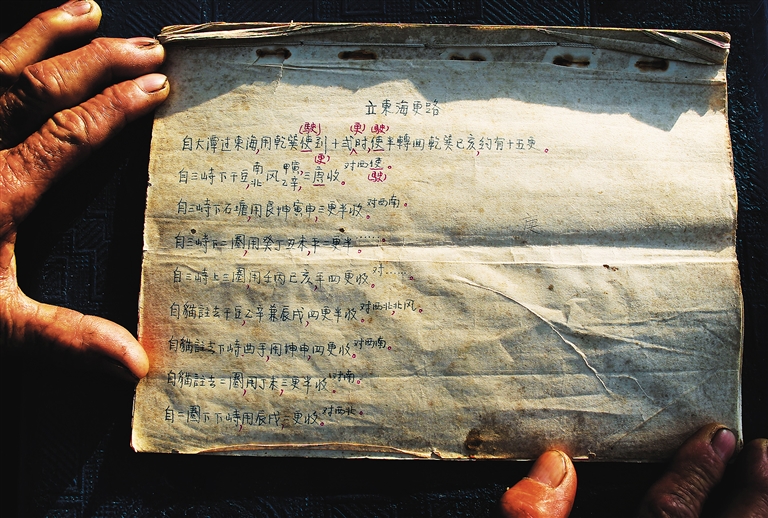 立東海更路
自大潭过東海,用乾巽使到十弍时,使半轉回乾巽巳亥,約有十五更。
(駛) (更) (駛)
自三峙下干豆,南北风甲寅乙辛,三更收。对西
(更) (駛)
自三峙下石塘,用艮坤寅申,三更半收。对西南。
自三峙下二圈,用癸丁丑未,平二更半……。
自三峙上三圈用壬丙巳亥,平四更收。对……。
自貓註去干豆,乙辛兼辰戌,四更半收。对西北,北风。
自貓註去下峙曲手,用坤申,四更收。对西南。
自貓註去二圈,用丁未,三更半收。对南。
自二圈下下峙,用辰戌,二更收。对西北。